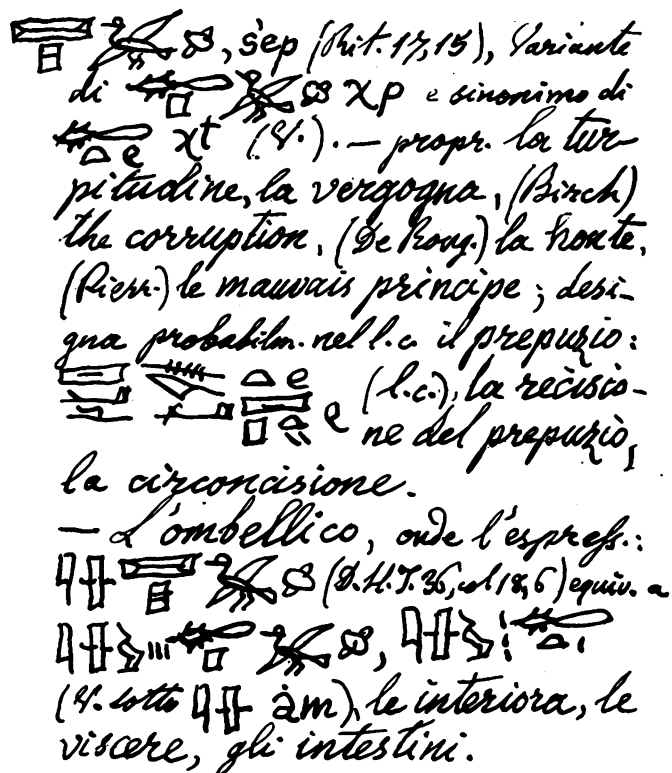 , šep (Rit. 17,15), Variante
di χp e sinonimo di
χt (V.). — propr. la tur-
pitudine, la vergogna, (Birch)
the corruption, (De Roug.) la honte,
(Pierr.) le mauvais principe; desi-
gna probabilm. nel l.c. il prepuzio:
(l.c.), la recisio-
ne del prepuzio,
la circoncisione.
— L'ombellico, onde l'espress.:
(D.H.T. 36, col 18,6) equiv. a
,
(V. sotto åm), le interiora, le
viscere, gli intestini.